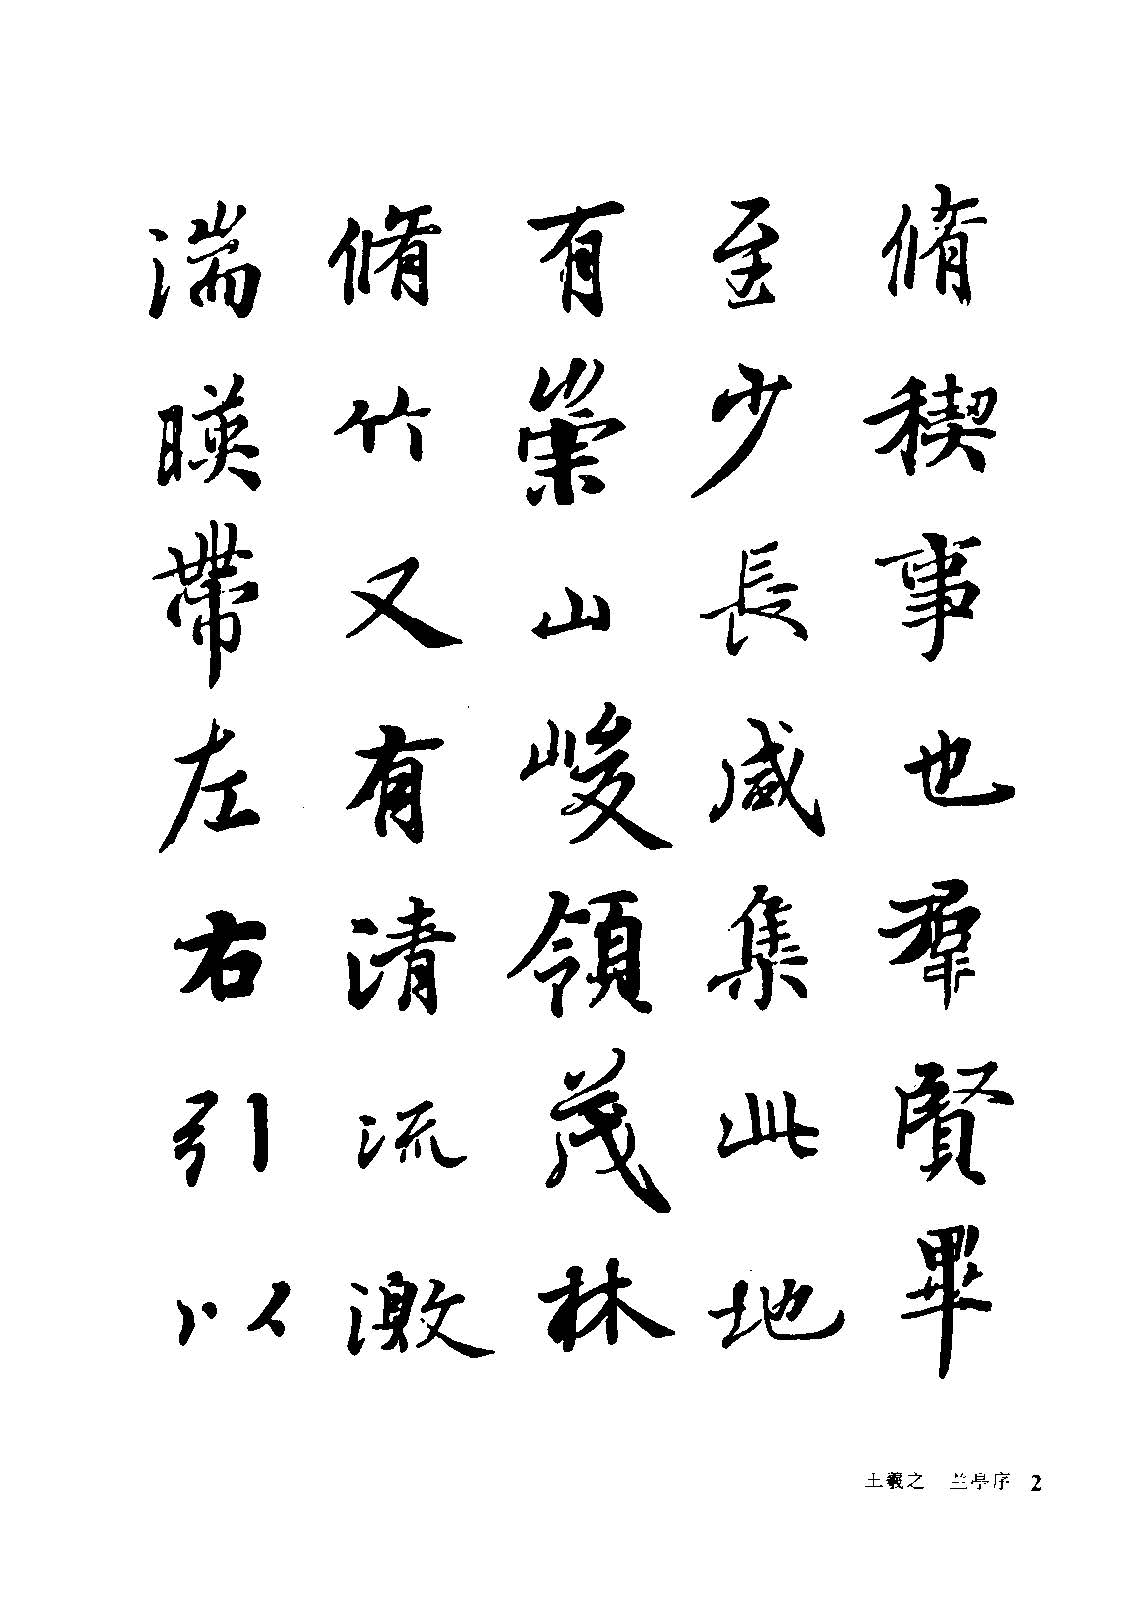 脩稧事也羣賢畢
至少長咸集此地
有崇山峻領茂林
脩竹又有清流激
湍暎帶左右引以
王羲之 兰亭序 2